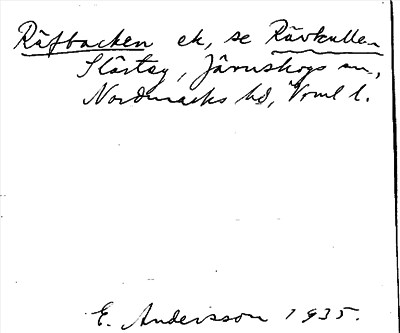 Räfbacken ek, se Rävkullen
Slästeg, Järnskogs sn,
Nordmarks hd, Vrml l.
E. Andersson 1935.